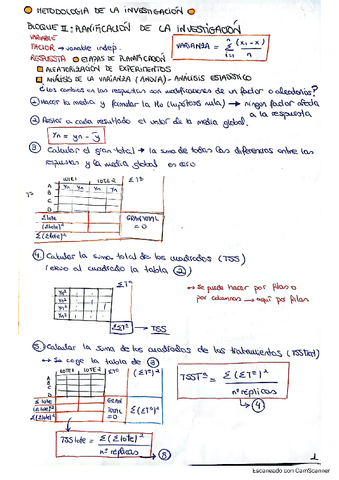 METODOLOGÍA DE LA INVESTIGACIÓN
BLOQUE II: PLANIFICACIÓN DE LA INVESTIGACIÓN
VARIABLE
FACTOR → variable indep.
VARIANZA = Σ (x₁ - x) / n
RESPUESTA ETAPAS DE PLANIFICACIÓN
ALEATORIZACIÓN DE EXPERIMENTOS
ANÁLISIS DE LA VARIANZA (ANOVA) - ANÁLISIS ESTADÍSTICO
¿Los cambios en las respuestas son modificaciones de un factor o aleatorios?
① Hacer la media y formular la H₀ (hipótesis nula) → ningún factor afecta
a la respuesta
② Restar a cada resultado el valor de la media global.
Yn = yn - ȳ
③ Calcular el gran total → la suma de todas las diferencias entre las
respuestas y la media global es cero
LOTE 1 LOTE 2 ΣTº
Yn Yn Yn Yn
A
B
C
D
Tº
Σ lote
(Σ lote)²
Σ(Σ lote)²
GRAN TOTAL
= 0
④ Calcular la suma total de los cuadrados (TSS)
(elevo al cuadrado la tabla ②)
→ Se puede hacer por filas o
por columnas → aquí por filas
ΣTº
Yn² Yn²
Yn²
Yn²
Yn²
ΣΣTº → TSS
⑤ Calcular la suma de los cuadrados de los tratamientos (TSSTrat)
→ Se coge la tabla de ③
LOTE 1 LOTE 2 ΣTº (ΣTº)²
A
B
C
D
Σ lote
(Σ lote)²
Σ(Σ lote)²
GRAN
TOTAL
= 0
Σ(ΣTº)²
TSSTº = Σ(ΣTº)² / nº réplicas
④
TSS lote = Σ(Σ lote)² / nº réplicas
1
Escaneado con CamScanner